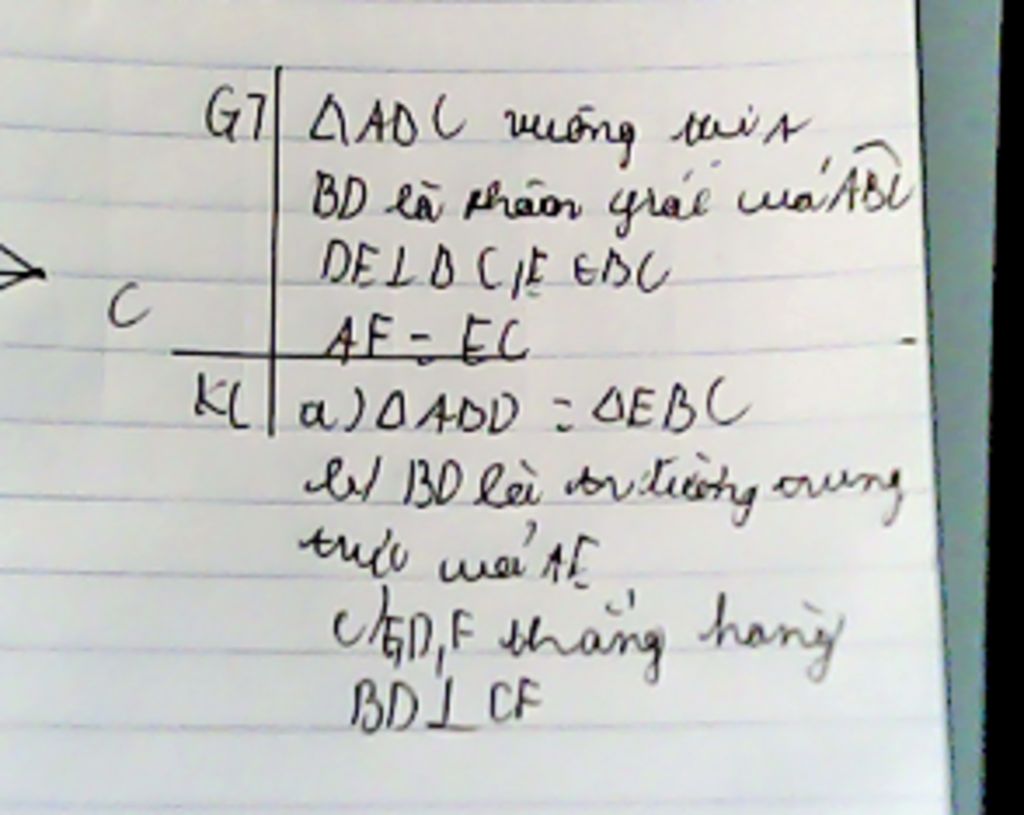 GT ΔABC vuông tại A
BD là phân giác của ABC
DE⊥BC, E ∈BC
AF = EC
C
KL a) ΔABD = ΔEBC
b/ BD là đường trung
trực của AE
c/ E, D, F thẳng hàng
BD⊥CF